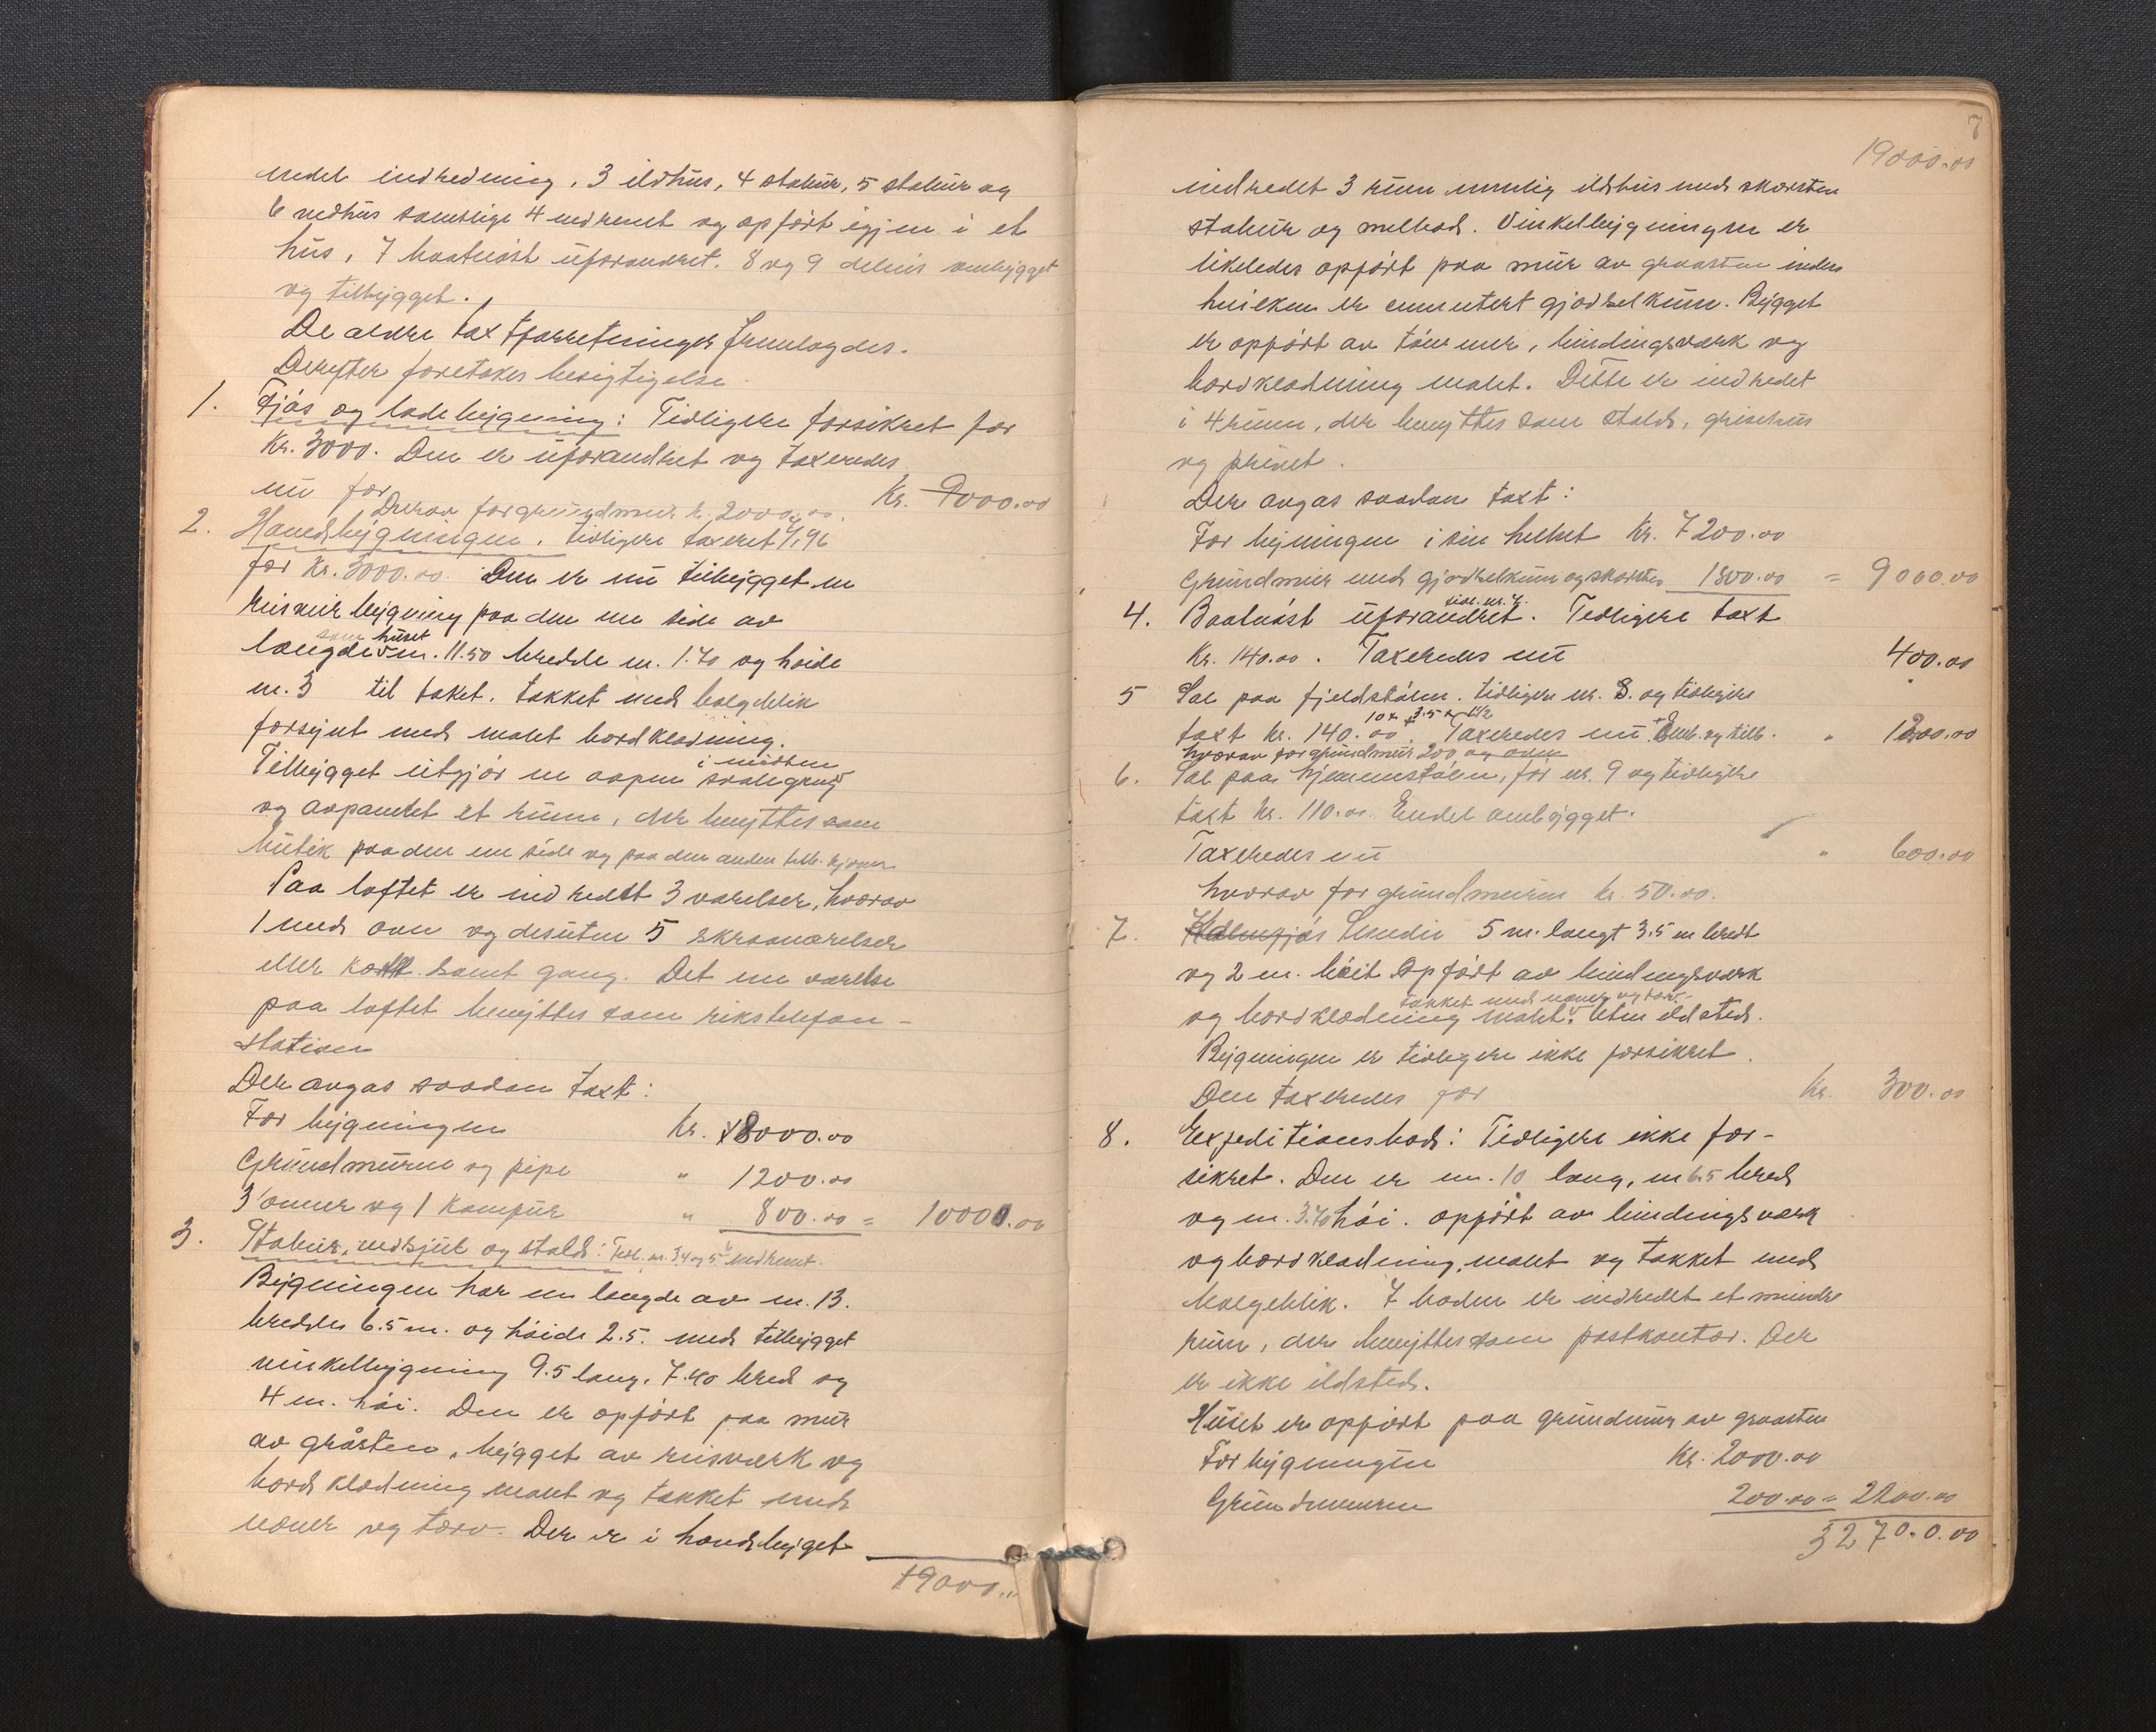 endel indredning, 3 ildhus, 4 stabur, 5 stabur og
6 vedhus samtlige 4 nedrevet og opført igjen i et
hus, 7 baatnøst uforandret. 8 og 9 delvis ombygget
og tilbygget.
De ældre taxtforretninger fremlagdes.
Derefter foretokes besigtigelse.
1. Fjøs og ladebygning: Tidligere forsikret for
Kr. 3000. Den er uforandret og taxeredes
nu for Kr. 9000.00
Derav for grundmur kr. 2000.00.
2. Hovedbygningen, tidligere taxeret 4/96
for Kr. 3000.00. Den er nu tilbygget en
reisverbygning paa den ene side av
som huset
længde m. 11.50 bredde m. 1.70 og høide
m. 3 til taket. Tækket med bølgeblik
forsynt med malt bordklædning.
i midten
Tilbygget utgjør en aapen svalegang
og avpanelet et rum, der benyttes som
butik paa den ene side og paa den anden
Paa loftet er indredet 3 værelser, hvorav
1 med ovn og desuten 5 skraaværelser
eller kott samt gang. Det ene værelse
paa loftet benyttes som rikstelefon-
station
Der avgas saadan taxt:
For bygningen Kr. 8000.00
Grundmuren og pipe " 1200.00
3 ovner og 1 komfur " 800.00 = 10000.00
3. Stabur, vedskjul og stald: Tidl. nr. 3 4 og 5 6 nedrevet.
Bygningen har en længde av m. 13.
bredde 6.5 m. og høide 2.5. med tilbygget
vinkelbygning 9.5 lang, 7.40 bred og
4 m. høi. Den er opført paa mur
av gråsten, bygget av reisværk og
bordklædning malt og tækket med
næver og torv. Der er i hovedbygget
19000.00
7
19000.00
indredet 3 rum nemlig ildhus med skorsten
stabur og melbod. Vinkelbygningen er
likeledes opført paa mur av graasten inden
hvilken er cementert gjødselkum. Bygget
er opført av tømmer, bindingsværk og
bordklædning malt. Dette er indredet
i 4 rum, der benyttes som stald, grisehus
og privet.
Der avgas saadan taxt:
For bygningen i sin helhet Kr. 7200.00
Grundmur med gjødselkum og skorsten 1800.00 = 9000.00
tidl. nr. 7.
4. Baatnøst uforandret. Tidligere taxt
Kr. 140.00. Taxeredes nu 400.00
5 Sel paa fjeldstølen. tidligere nr. 8. og tidligere
10 × 3.5 ×
taxt kr. 140.00. Taxeredes nu omb. og tilb. " 1200.00
hvorav for grundmur 200 og ovn
6. Sel paa hjemmestølen, før nr. 9 og tidligere
taxt kr. 110.00 Endel ombygget.
Taxeredes nu " 600.00
hvorav for grundmuren kr. 50.00.
7. Smedie 5 m. langt 3.5 m bredt
og 2 m. høit Opført av bindingsværk
tækket med næver og torv.
og bordklædning malt. Uten ildsted.
Bygningen er tidligere ikke forsikret.
Den taxeredes for Kr. 300.00
8. Expeditionsbod: Tidligere ikke for-
sikret. Den er m. 10 lang, m 6.5 bred
og m. 3.70 høi. opført av bindingsværk
og bordklædning, malt og tækket med
bølgeblik. I boden er indredet et mindre
rum, der benyttes som postkontor. Der
er ikke ildsted.
Huset er opført paa grundmur av graasten
For bygningen Kr. 2000.00
Grundmuren 200.00 = 2200.00
32700.00